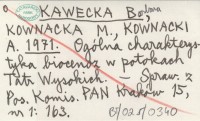 KAWECKA B.,
KOWNACKA M., KOWNACKI
A. 1971. Ogólna charakterys-
tyka biocenoz w potokach
Tatr Wysokich. – Spraw. z
Pos. Komis. PAN Kraków 15,
nr 1: 163.
B/02s/0340